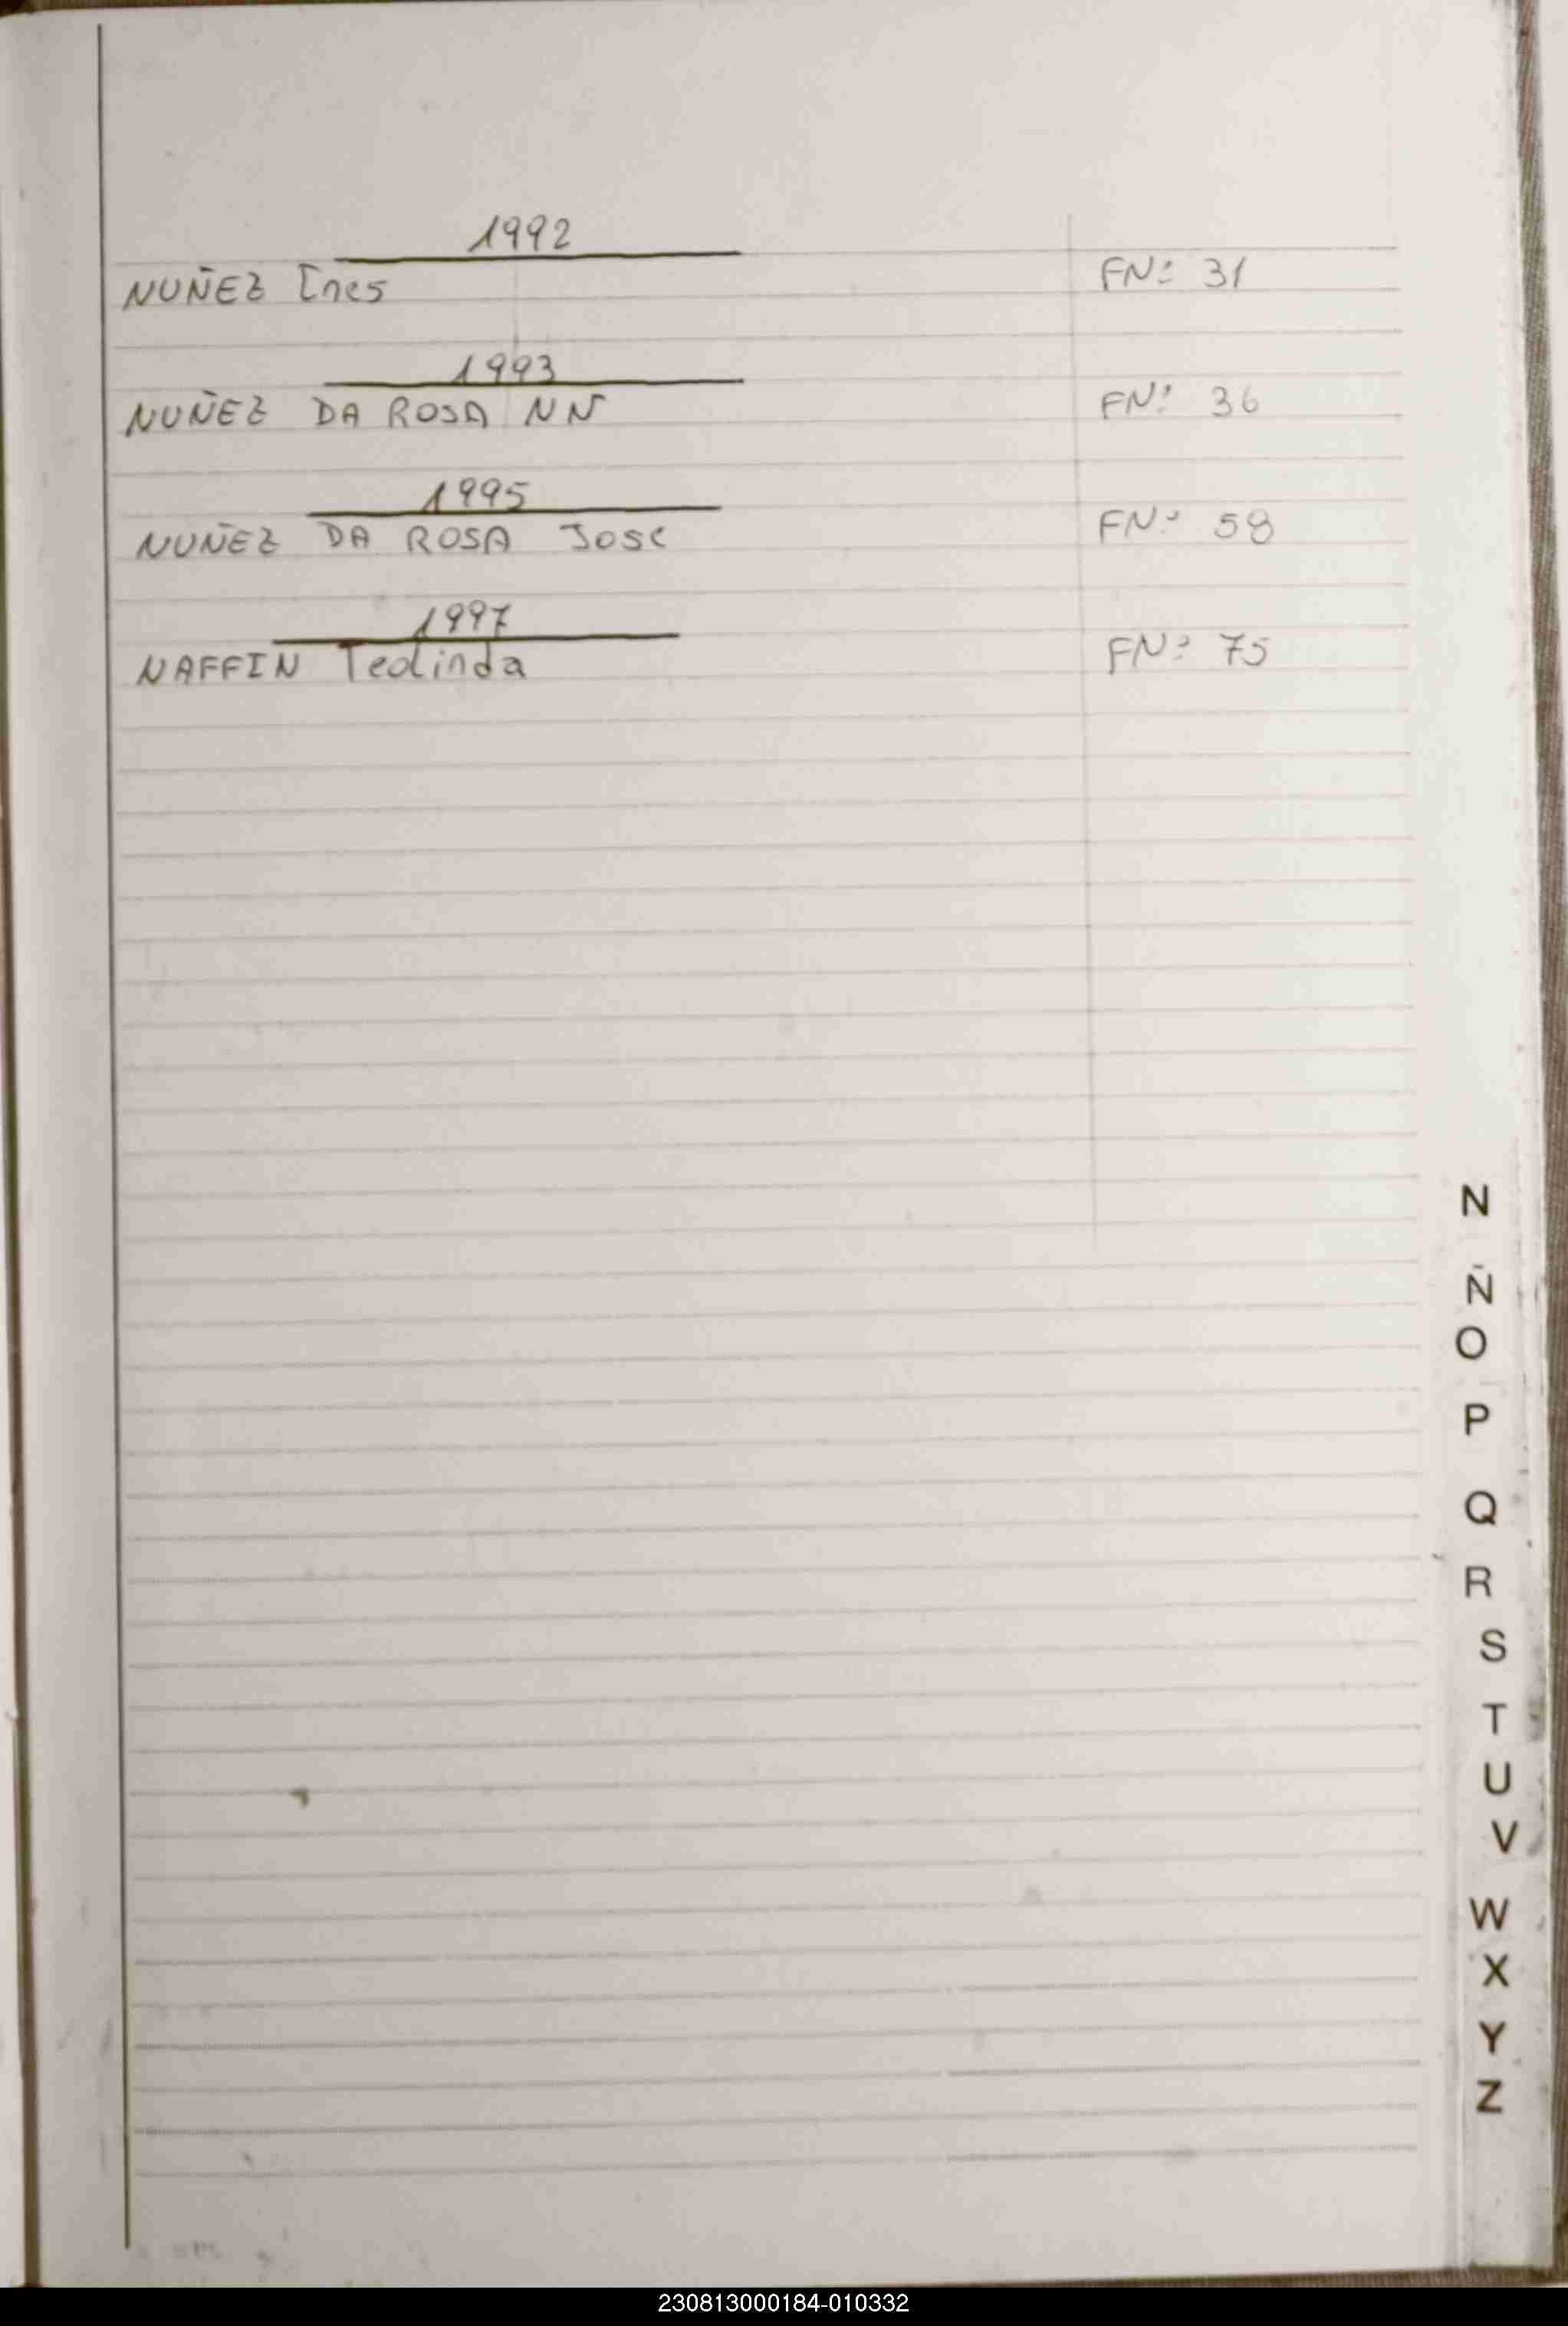 1992
NUÑEZ Ines FNº 31
1993
NUÑEZ DA ROSA NN FNº 36
1995
NUÑEZ DA ROSA Jose FNº 58
1997
NAFFIN Teolinda FNº 75
N
Ñ
O
P
Q
R
S
T
U
V
W
X
Y
Z
230813000184-010332